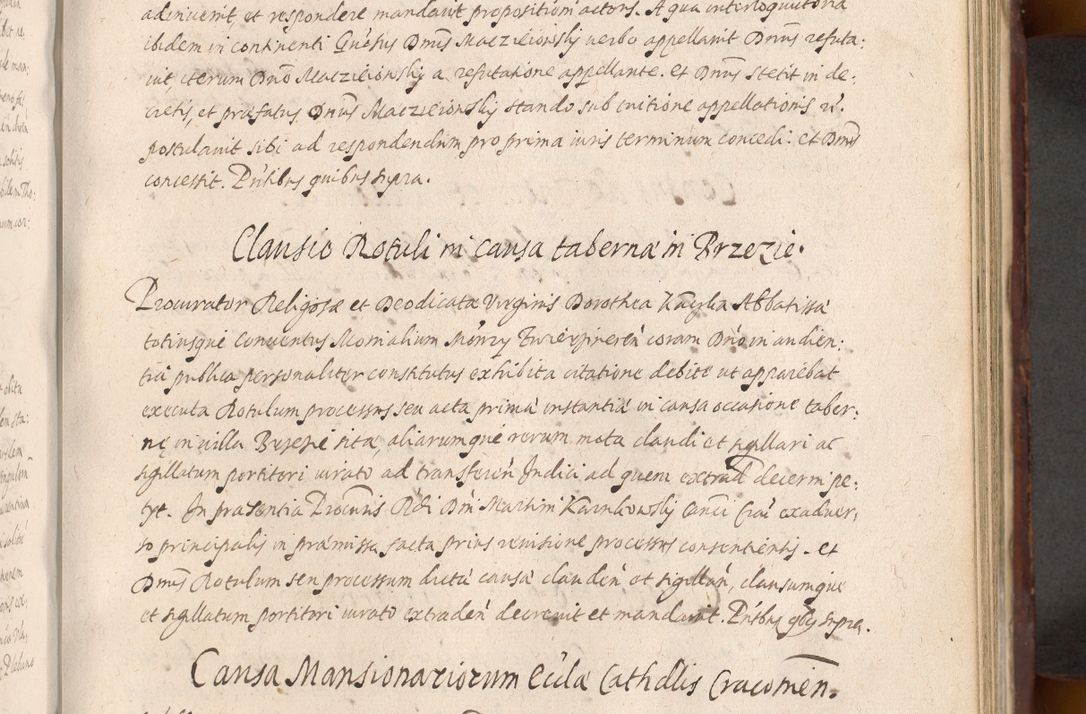 adinvenit, et respondere mandavit propositium actors. A qua interloquutoria
ibidem in continenti Gnosus Dnus Maczieiowskÿ verbo appellavit Dnus refuta:
vit, iterum Dno Maczieiowskÿ a refutatione appellante. et Dnus stetit in de:
cretis, et præfatus Dnus Maczieiowskÿ stando sub initione appellationis
postulavit sibi ad respondendum pro prima iuris terminum concedi. et Dnus
concessit. Pntibus quibus supra.
Clausio Rotuli in causa tabernæ in Brzezie.
Procurator Religiosæ et Deodicatæ Virginis Dorothea Kącyka Abbatissæ
totiusque Conventus Monialium Mónrÿ Zwierzinecen coram Dno in audien:
tia publica personaliter constitutus exhibita citatione debite ut apparebat
executa Rotulum processus seu acta primæ instantiæ in causa occasione taber:
nę in villa Brzezie sitæ, aliarumque rerum mota claudi et sigillari ac
sigillatum portitori iurato ad transferen Iudici ad quem extrad decerni pe:
tyt. In præsentia Procuris Rdi Dni Martini Karnkowskÿ Canci Crac exadver,
so principalis in præmissa facta prius revisione processus consentientis. et
Dnus Rotulum seu processum dictæ causæ clauden et sigillan, clausumque
et sigillatum portitori iurato extraden decrevit et mandavit. Pntibus qbus supra.
Causa Mansionariorum Eccla Cathdlis Cracovien.